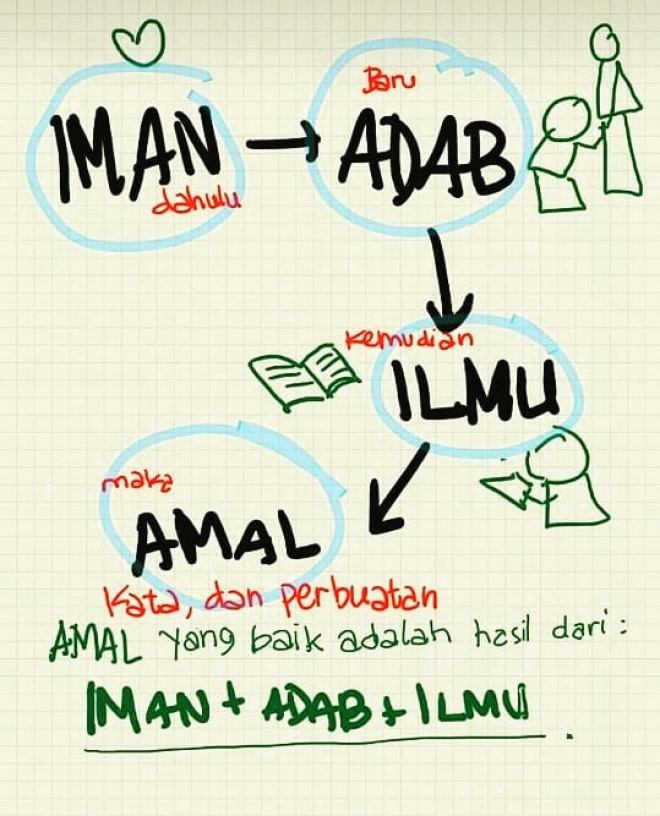 IMAN
dahulu
Baru
ADAB
kemudian
ILMU
maka
AMAL
Kata, dan perbuatan
AMAL yang baik adalah hasil dari:
IMAN + ADAB + ILMU.